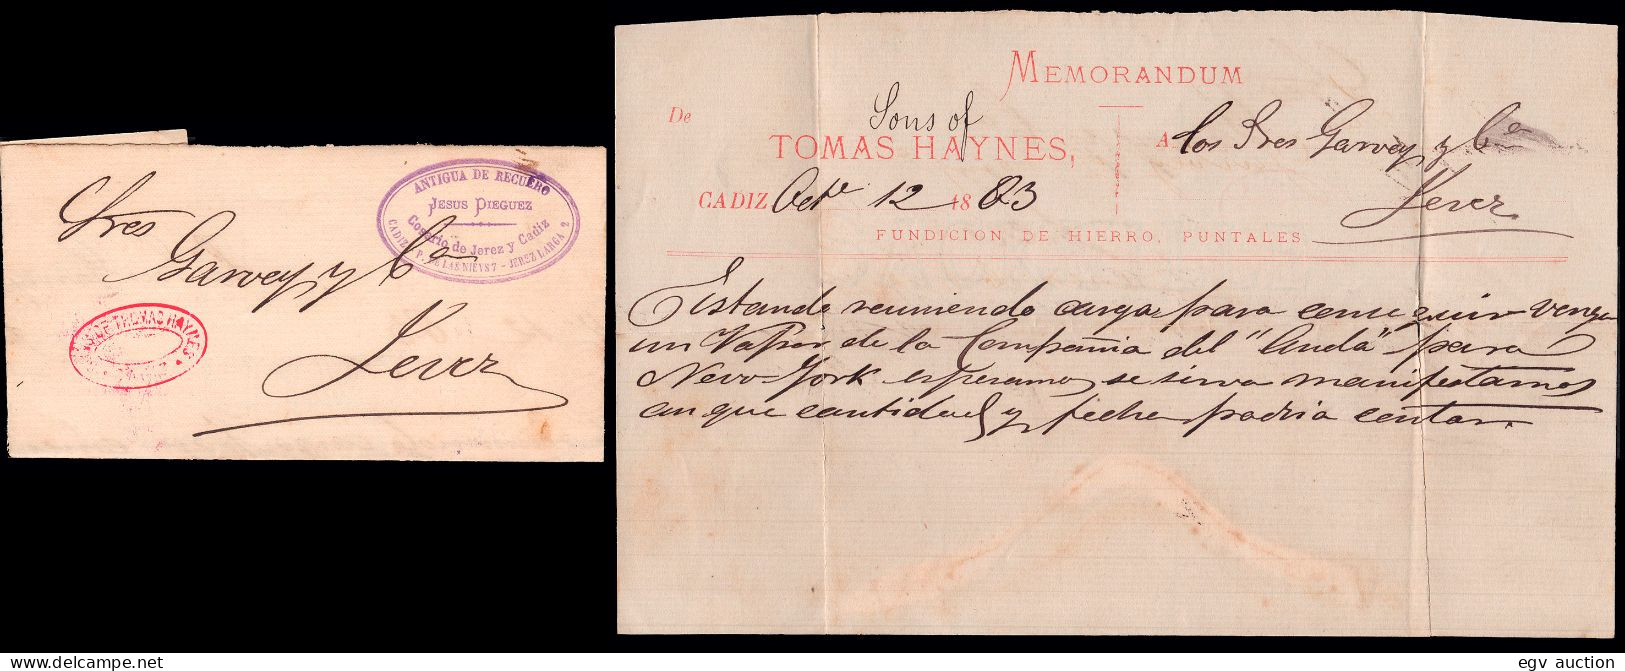 Sres
Garvey y Ca
Jerez
ANTIGUA DE RECUERO
JESUS PIEGUEZ
Cosario de Jerez y Cadiz
CADIZ P. DE LAS NIEVS 7 - JEREZ LARGA 2
DE THOMAS HAYNES
MEMORANDUM
De
Sons of
TOMAS HAYNES,
A los Sres Garvey y Ca
Jerez
CADIZ Octe 12 1883
FUNDICION DE HIERRO, PUNTALES
Estando reuniendo carga para conseguir venga
un Vapor de la Compañia del "Anda" para
Nevo-York esperamos se sirva manifestarnos
con que cantidad y fecha podria contar.
egv auction
www.delcampe.net